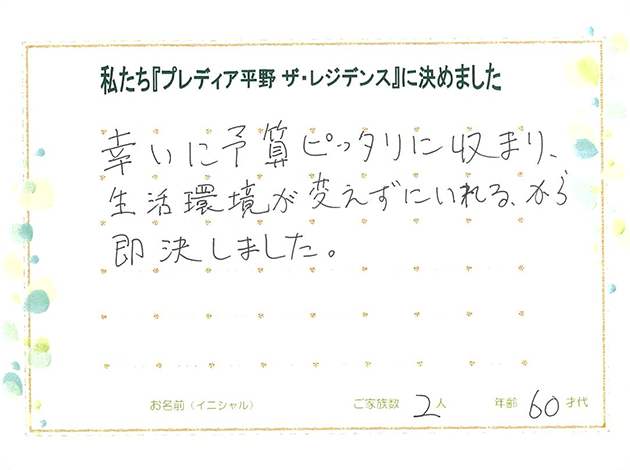 私たち『プレディア平野 ザ・レジデンス』に決めました
幸いに予算ピッタリに収まり、
生活環境が変えずにいれる、から
即決しました。
お名前（イニシャル） ご家族数 2人 年齢 60才代